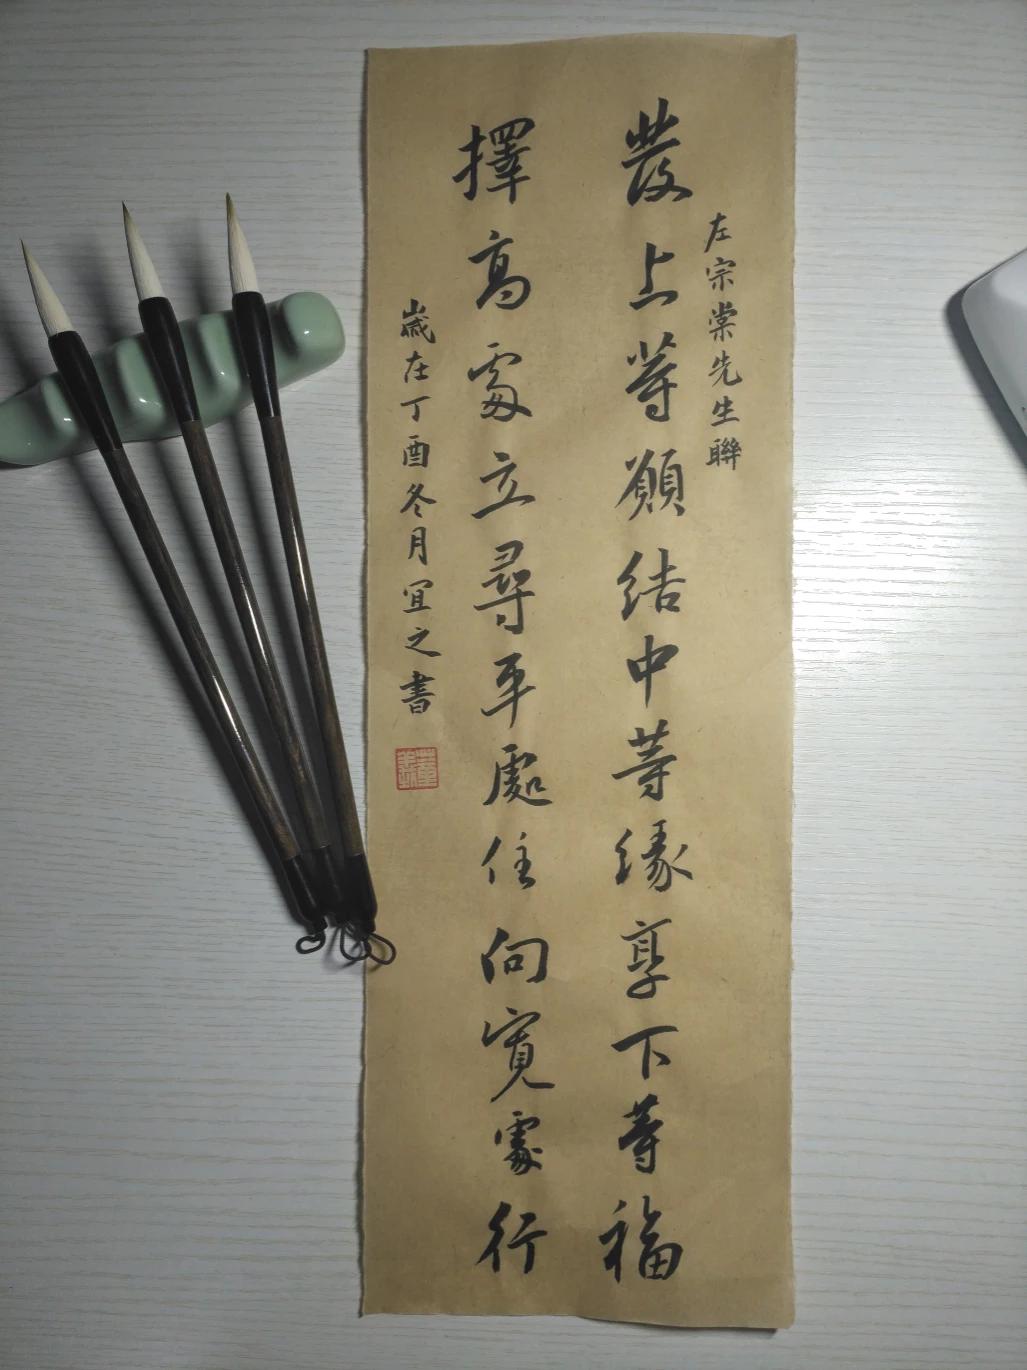 左宗棠先生聯
發上等願結中等緣享下等福
擇高處立尋平處住向寬處行
歲在丁酉冬月宜之書